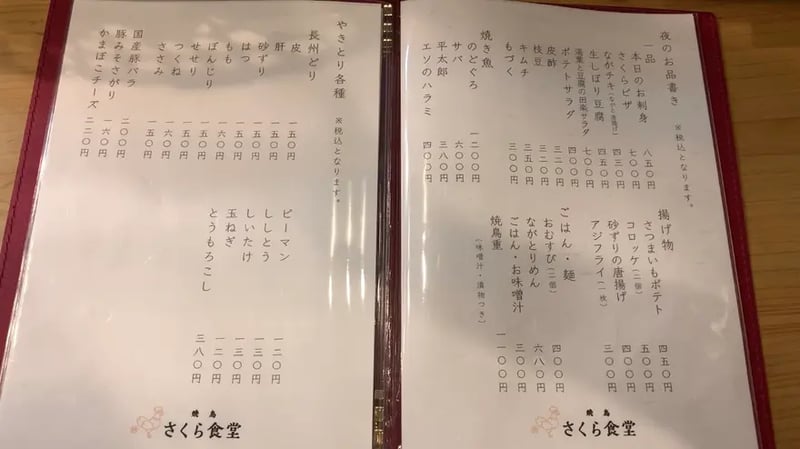 夜のお品書き ※税込となります。
一品
本日のお刺身 八五〇円
さくらピザ 七〇〇円
ながテキ 四三〇円
生しぼり豆腐 四五〇円
湯葉と豆腐の田楽サラダ 七〇〇円
ポテトサラダ 四〇〇円
皮酢 三二〇円
枝豆 三二〇円
キムチ 三五〇円
もづく 三〇〇円
焼き魚
のどぐろ 一二〇〇円
サバ 六〇〇円
平太郎 三八〇円
エソのハラミ 四〇〇円
揚げ物
さつまいもポテト 四五〇円
コロッケ(二個) 五〇〇円
砂ずりの唐揚げ 四〇〇円
アジフライ(一枚) 三〇〇円
ごはん・麺
おむすび(二個) 四〇〇円
ながとりめん 六八〇円
ごはん・お味噌汁 三〇〇円
焼鳥重 一一〇〇円
(味噌汁・漬物つき)
焼鳥
さくら食堂
やきとり各種 ※税込となります。
長州どり
皮 一五〇円
肝 一五〇円
砂ずり 一五〇円
はつ 一五〇円
もも 一五〇円
ぼんじり 一五〇円
せせり 一五〇円
つくね 一六〇円
ささみ 一五〇円
国産豚バラ 二〇〇円
豚みそさがり 一六〇円
かまぼこチーズ 二二〇円
ピーマン 一二〇円
ししとう 一三〇円
しいたけ 一三〇円
玉ねぎ 一二〇円
とうもろこし 三八〇円
焼鳥
さくら食堂